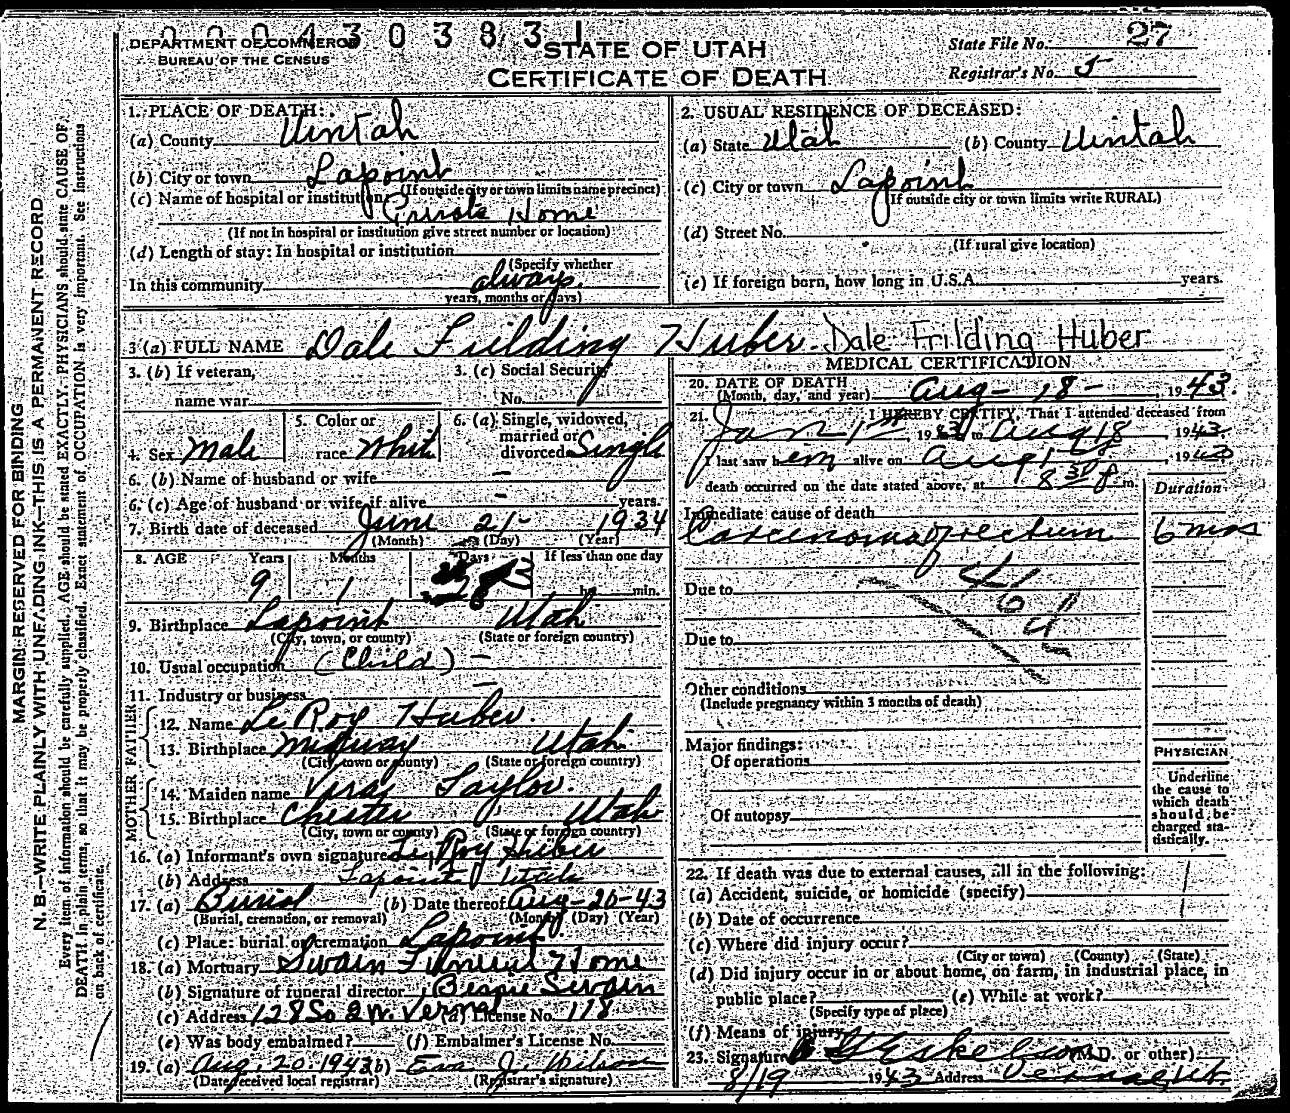 0 0 0 4 3 0 3 8 3 1
DEPARTMENT OF COMMERCE
BUREAU OF THE CENSUS
STATE OF UTAH
CERTIFICATE OF DEATH
State File No. 27
Registrar's No. 5
MARGIN RESERVED FOR BINDING
N. B.—WRITE PLAINLY WITH UNFADING INK—THIS IS A PERMANENT RECORD
Every item of information should be carefully supplied. AGE should be stated EXACTLY. PHYSICIANS should state CAUSE OF
DEATH in plain terms, so that it may be properly classified. Exact statement of OCCUPATION is very important. See instructions
on back of certificate.
1. PLACE OF DEATH:
(a) County Uintah
(b) City or town Lapoint
(If outside city or town limits name precinct)
(c) Name of hospital or institution:
Private Home
(If not in hospital or institution give street number or location)
(d) Length of stay: In hospital or institution
(Specify whether
In this community always.
years, months or days)
2. USUAL RESIDENCE OF DECEASED:
(a) State Utah (b) County Uintah
(c) City or town Lapoint
(If outside city or town limits write RURAL)
(d) Street No.
(If rural give location)
(e) If foreign born, how long in U.S.A. years.
3 (a) FULL NAME Dale Frilding Huber. Dale Frilding Huber
3. (b) If veteran, 3. (c) Social Security
name war No.
4. Sex Male 5. Color or race White 6. (a) Single, widowed, married or divorced Single
6. (b) Name of husband or wife —
6. (c) Age of husband or wife, if alive - years.
7. Birth date of deceased June 21- 1934
(Month) (Day) (Year)
8. AGE Years Months Days If less than one day
9 1 28 hr. min.
9. Birthplace Lapoint Utah
(City, town, or county) (State or foreign country)
10. Usual occupation (Child) —
11. Industry or business —
FATHER
12. Name LeRoy Huber.
13. Birthplace Midway Utah
(City, town or county) (State or foreign country)
MOTHER
14. Maiden name Vera Taylor.
15. Birthplace Chester Utah
(City, town or county) (State or foreign country)
16. (a) Informant's own signature Le Roy Huber
(b) Address Lapoint Utah
17. (a) Burial (b) Date thereof Aug-20-43
(Burial, cremation, or removal) (Month) (Day) (Year)
(c) Place: burial or cremation Lapoint.
18. (a) Mortuary Swain Funeral Home
(b) Signature of funeral director Swain
(c) Address 128 So 2 W. Vernal (d) License No. 118
(e) Was body embalmed? (f) Embalmer's License No.
19. (a) Aug. 20. 1943 (b) Eva J. Wilson
(Date received local registrar) (Registrar's signature)
MEDICAL CERTIFICATION
20. DATE OF DEATH
(Month, day, and year) Aug- 18- , 1943.
21. I HEREBY CERTIFY, That I attended deceased from
Jan 1st 1943 to Aug 18 , 1943
I last saw him alive on Aug 18 , 1943
death occurred on the date stated above, at 8 30 P m.
Immediate cause of death Duration
Carcinoma of rectum 6 mos
Due to
Due to
Other conditions
(Include pregnancy within 3 months of death)
Major findings:
Of operations
Of autopsy
PHYSICIAN
Underline
the cause to
which death
should be
charged sta-
tistically.
22. If death was due to external causes, fill in the following:
(a) Accident, suicide, or homicide (specify)
(b) Date of occurrence
(c) Where did injury occur?
(City or town) (County) (State)
(d) Did injury occur in or about home, on farm, in industrial place, in
public place? (e) While at work?
(Specify type of place)
(f) Means of injury
23. Signature Eskelson (M.D. or other)
8/19 1943 Address Vernal, Ut.